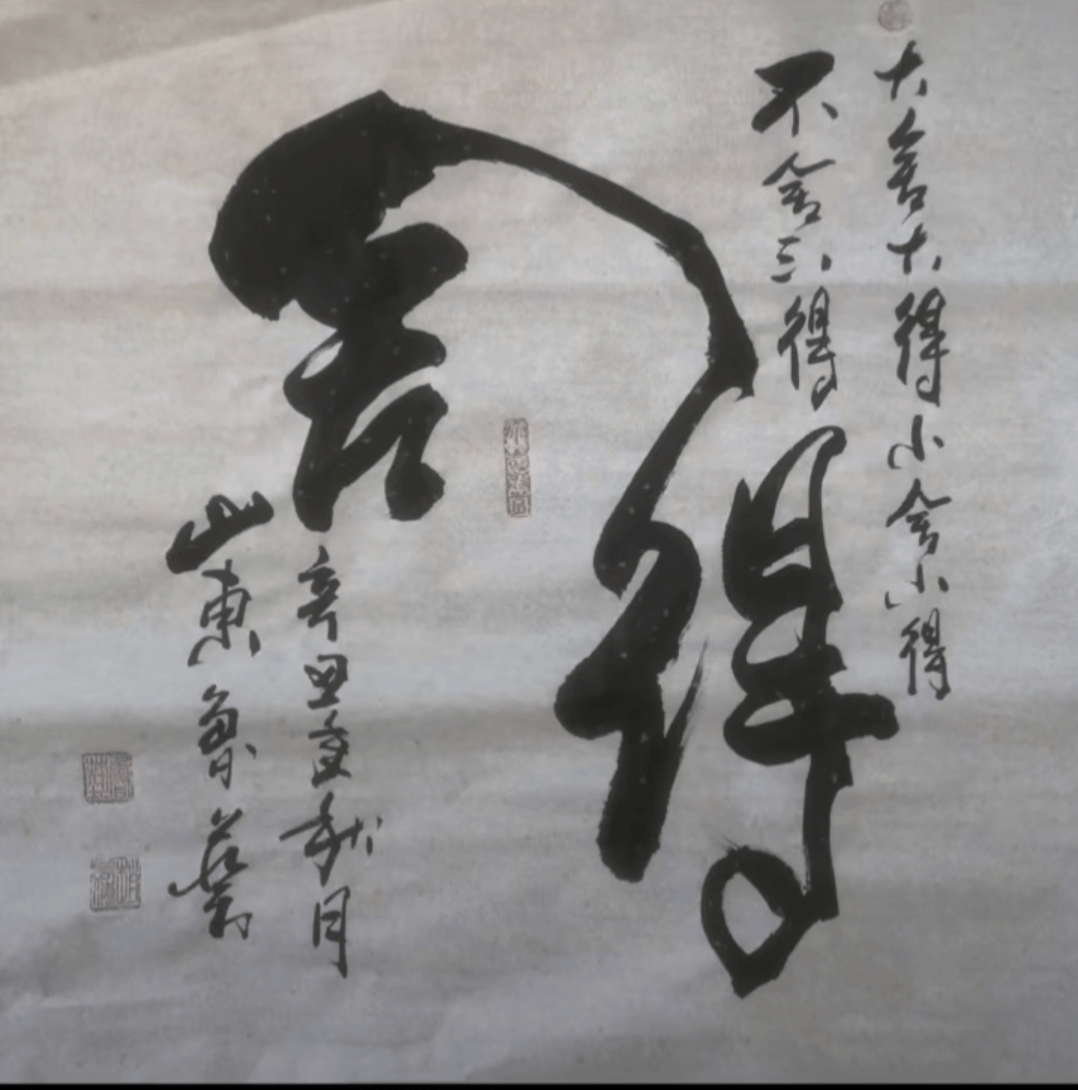 大舍大得小舍小得
不舍不得
舍得
辛丑秋月
山東魯